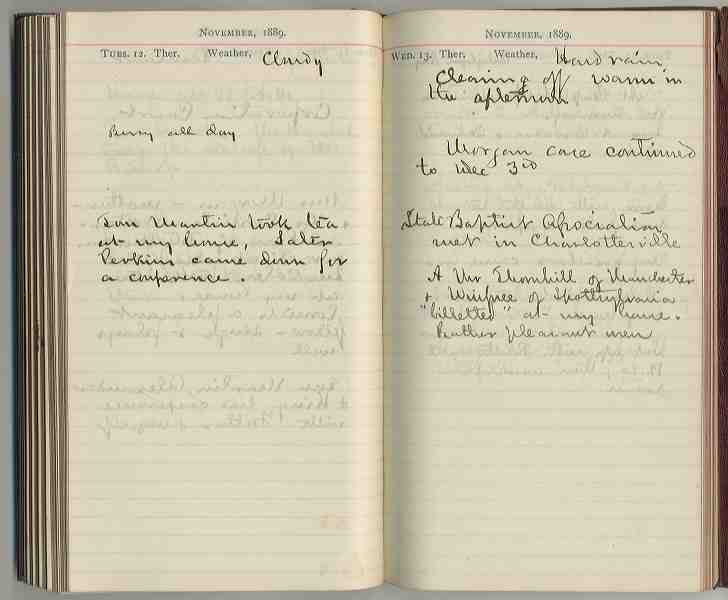 NOVEMBER, 1889.
TUES. 12. Ther. Weather, Cloudy
Busy all day
Tom Martin took tea
at my home, Later
Perkins came down for
a conference.
NOVEMBER, 1889.
WED. 13. Ther. Weather, Hard rain
Clearing off warm in
the afternoon
Morgan case continued
to Dec 3rd
State Baptist Association
met in Charlottesville
A Mr Thornhill of Manchester
+ Winfree of Spottsylvania
"billetted" at my home.
Rather pleasant men